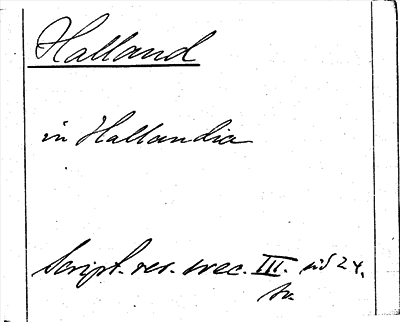 Halland
in Hallandia
Script. rer. svec. III. sid 24.